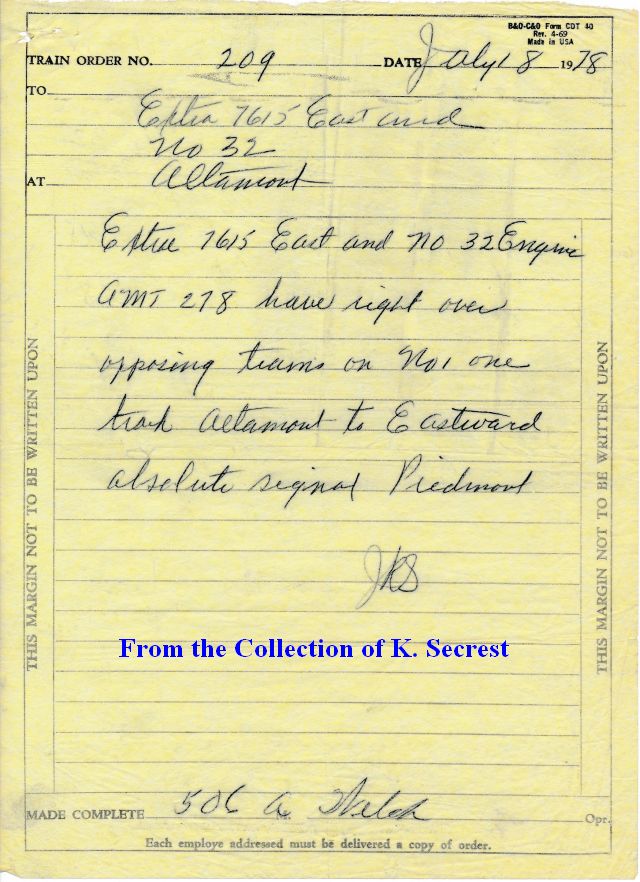 B&O-C&O Form CDT 40
Rev. 4-69
Made in USA
TRAIN ORDER NO. 209 DATE July 18 1978
TO
Extra 7615 East and
No 32
AT Altamont
Extra 7615 East and No 32 Engine
AMT 278 have right over
opposing trains on No 1 one
track Altamont to Eastward
absolute signal Piedmont
JRS
THIS MARGIN NOT TO BE WRITTEN UPON
THIS MARGIN NOT TO BE WRITTEN UPON
From the Collection of K. Secrest
MADE COMPLETE 506 A Welch Opr.
Each employe addressed must be delivered a copy of order.